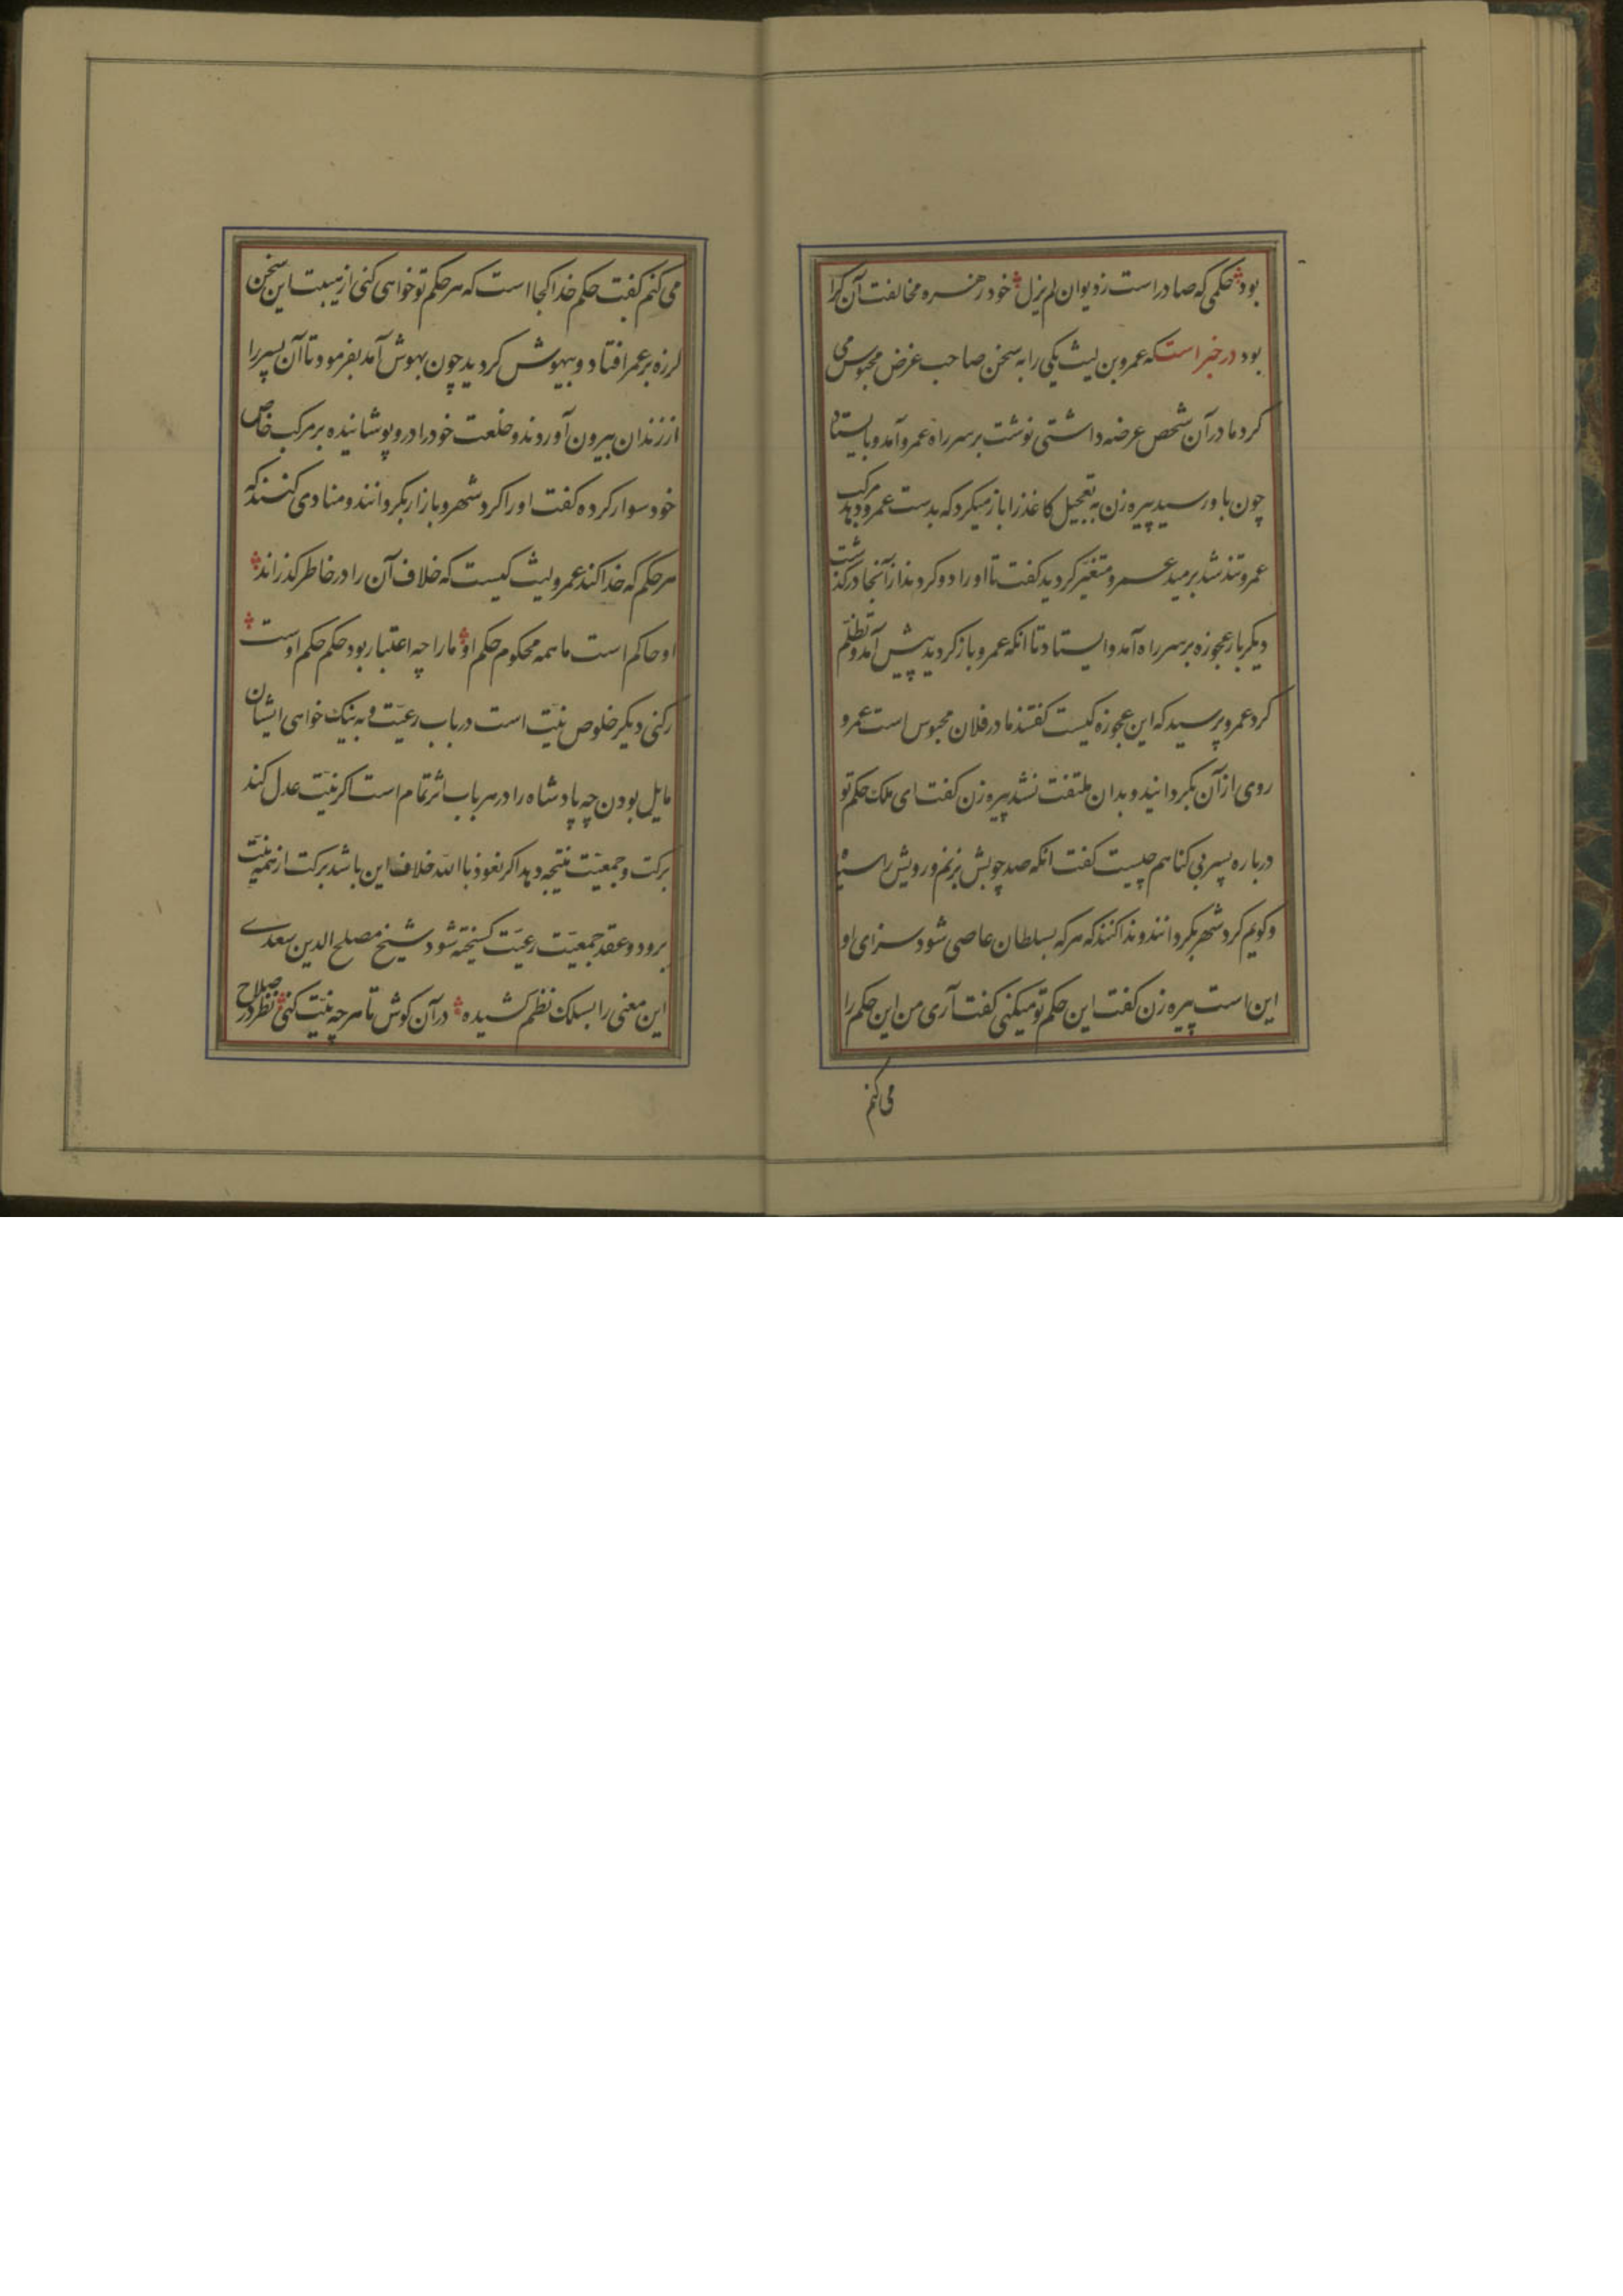 بود حکمی که صادر است ز دیوان لم یزل خود زهره مخالفت آن کرا
بود در خبر است که عمرو بن لیث یکی را به سخن صاحب غرض محبوس می
کرد مادر آن شخص عرضه داشتی نوشت بر سر راه عمرو آمد و بایستاد
چون باو رسید پیره زن به تعجیل کاغذ را باز میکرد که بدست عمرو دهد مرکب
عمرو تند شد برمید عمرو متغیّر کردید کفت تا او را دو کردند از آنجا درکذشت
دیکر بار عجوزه بر سر راه آمد و ایستاد تا انکه عمرو باز کردید پیش آمد و تظلّم
کرد عمرو پرسید که این عجوزه کیست کفتند مادر فلان محبوس است عمرو
روی از آن بکردانید و بدان ملتفت نشد پیره زن کفت ای ملک حکم تو
درباره پسر بی کناهم چیست کفت انکه صد چوبش بزنم و رویش را سیاه
و کویم کرد شهر بکردانند و ندا کنند که هر که بسلطان عاصی شود سزای او
این است پیره زن کفت این حکم تو میکنی کفت آری من این حکم را
می کنم
می کنم کفت حکم خدا کجا است که هر حکم تو خواهی کنی از هیبت این سخن
لرزه بر عمر افتاد و بیهوش کردید چون بهوش آمد بفرمود تا آن پسر را
از زندان بیرون آوردند و خلعت خود را در و پوشانیده بر مرکب خاص
خود سوار کرده کفت او را کرد شهر و بازار بکردانند و منادی کنند که
هر حکم که خدا کند عمرو لیث کیست که خلاف آن را در خاطر کذراند
او حاکم است ما همه محکوم حکم او ما را چه اعتبار بود حکم حکم اوست
رکنی دیکر خلوص نیّت است در باب رعیّت و به نیک خواهی ایشان
مایل بودن چه پادشاه را در هر باب اثر تمام است اکر نیّت عدل کند
برکت و جمعیّت نتیجه دهد اکر نعوذ باالله خلاف این باشد برکت از همه نیّت
برود و عقد جمعیّت رعیّت کسیخته شود شیخ مصلح الدین سعدی
این معنی را بسلک نظم کشیده در آن کوش تا هر چه نیّت کنی نظر در صلاح